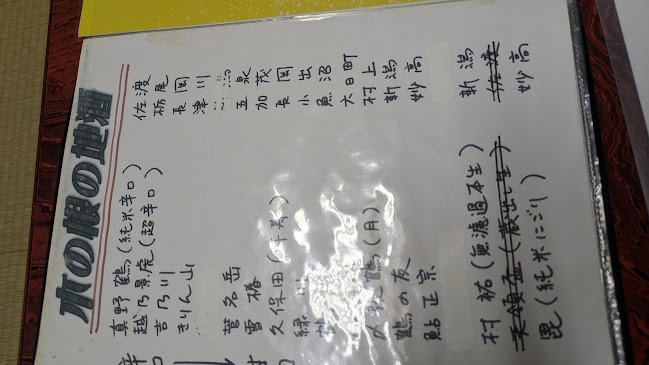 木の根の地酒
真野鶴(純米辛口) 佐渡
越乃景虎(超辛口) 栃尾
吉乃川 長岡
きりん山 津川
菅名岳 五泉
雪椿 加茂
久保田(千寿) 長岡
緑川 小出
魚沼
六日町
〆張鶴(月) 村上
鶴の友 新潟
鮎正宗 妙高
村祐(無濾過本生) 新潟
天領盃(蔵出し生) 佐渡
毘(純米にごり) 妙高